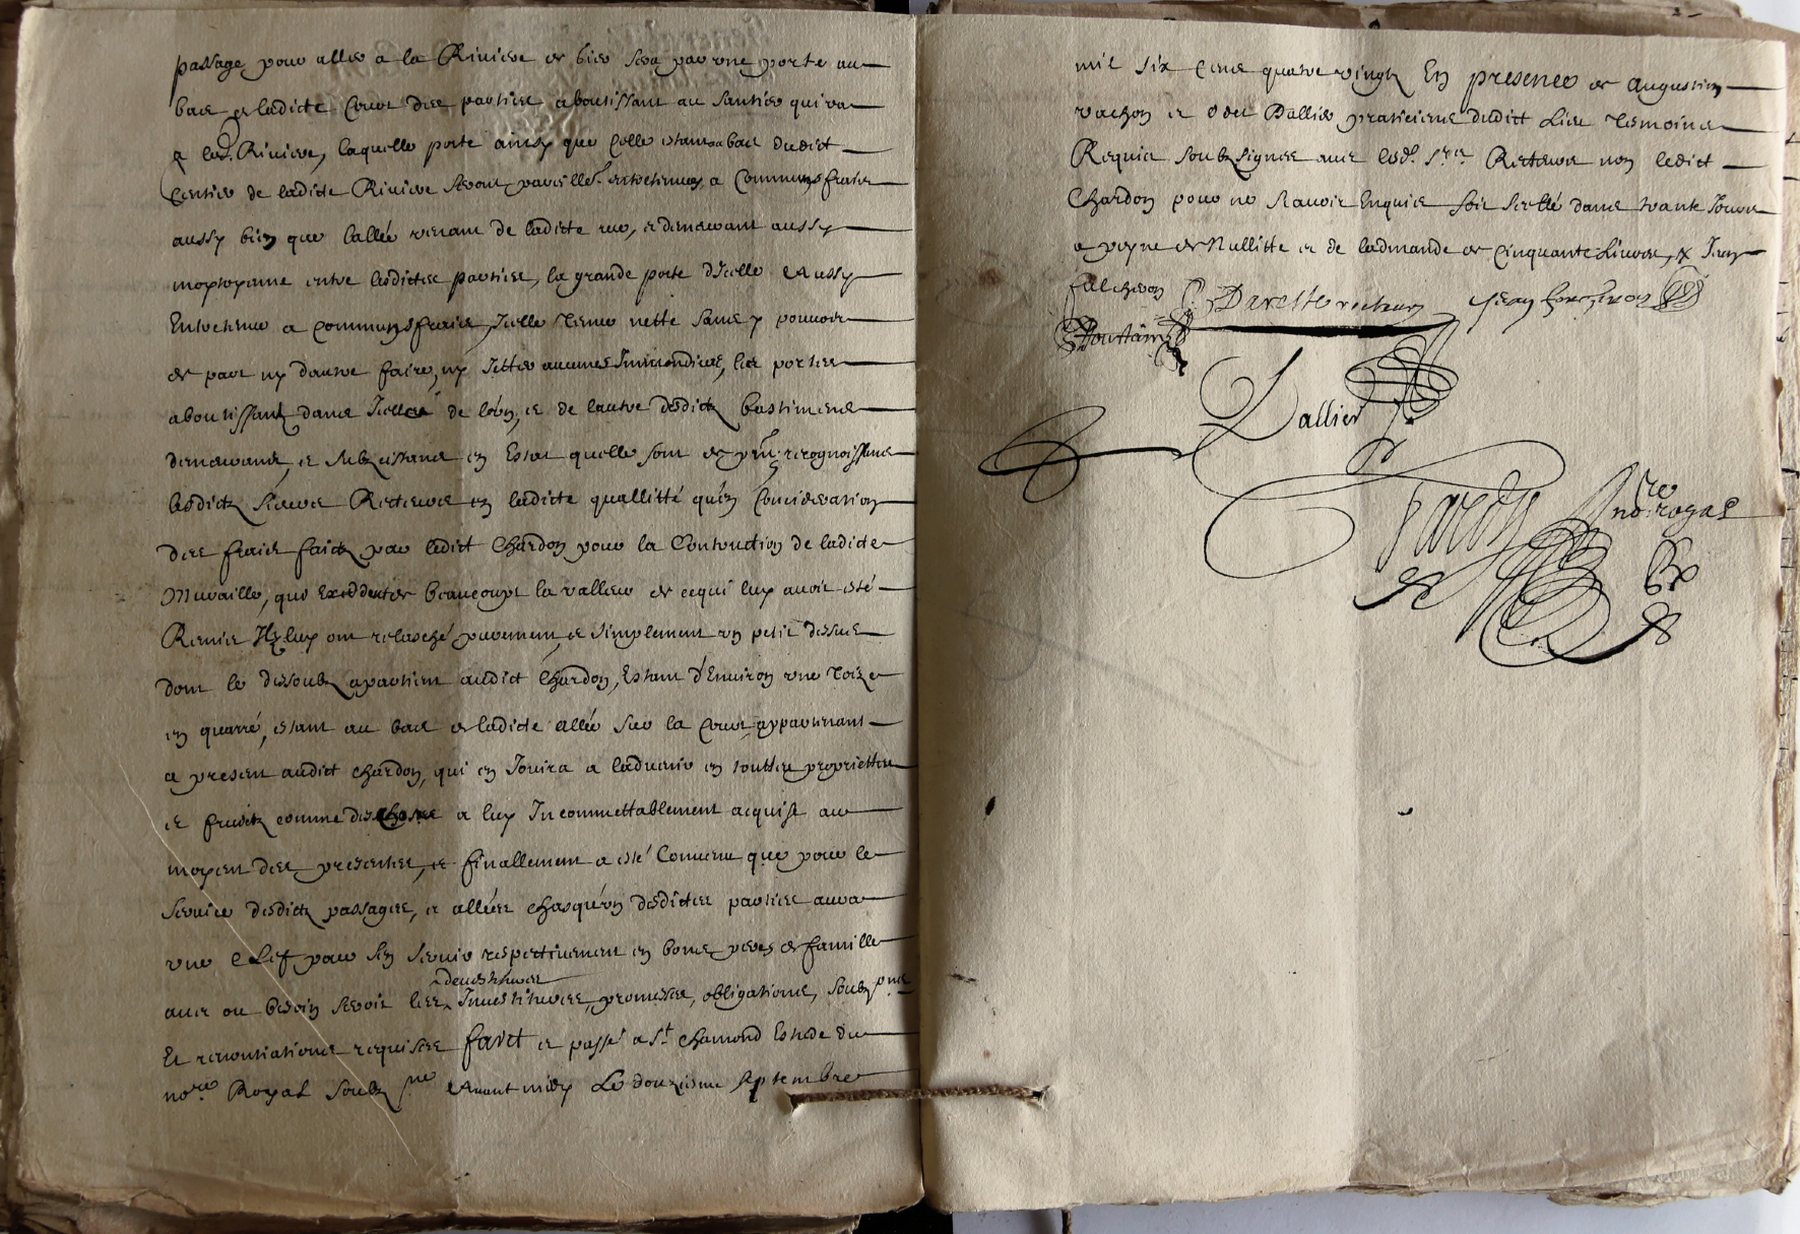 passage pour aller a la Riviere et bief sera par une porte au
bas de ladicte Cour des parties aboutissant au santier qui va
a lad. Riviere, laquelle porte ainsy que celle estant a bas dudict
sentier de ladicte Riviere seront pareillemt. entretenues a Communs fraix
aussy bien que lallée venant de ladicte rue, et demeurant aussy
moytoyenne entre lesdictes parties, la grande porte d'icelle Aussy
Entretenue a communs fraix, Icelle Tenue nette sans y pouvoir
de part ny dautre faire, ny Jetter aucunes Immondices, les portes
aboutissant dans Icelle de lun, et de lautre desdictz bastimens
demeurant, et subsistans en Estat quelle sont de pnt. recognoissans
lesdictz Sieurs Recteurs en ladicte quallitté qu'en Consideration
des fraix faictz par ledict Chardon pour la Contruction de ladicte
Muraille, que Exeddent de beaucoupt la valleur de ce qui luy avoit esté
Remis Ilz luy ont relasché purement, et simplement un petit dessus
dont le dessoubz apartient audict Chardon, Estant d'Environ une Toize
en quarré, estant au bas de ladicte allée sur la Cour appartenant
a present audict Chardon, qui en Jouira a ladvenir en touttes proprietten
et fruictz comme des chose a luy Incommettablement acquise au
moyen des presentes, et finallement a esté Convenu que pour le
service desdictz passages, et allées chasqu'un desdictes parties aura
une Clef pour sen servir respectivement en bons peres de famille
avec ou besoin seroit les Investitures, promesses, obligations, soubzmis
Et renontiations requises faict et passé a St. Chamond Estude du
nore. Royal soubzne. Avant midy Le douziesme septembre
mil six Cens quatre vingtz En presence de Augustin
vachon et Odet Dallier praticiens dudict Lieu Tesmoins
Requis soubzsignes avec lesd. srs. Recteurs non ledict
Chardon pour ne scavoir Enquis soit scellé dans trante Jours
a peyne de Nullitte et de lademande de Cinquante Livres, Jean
falcheron
Dareste vachon Jean
Dallier
nore. royal